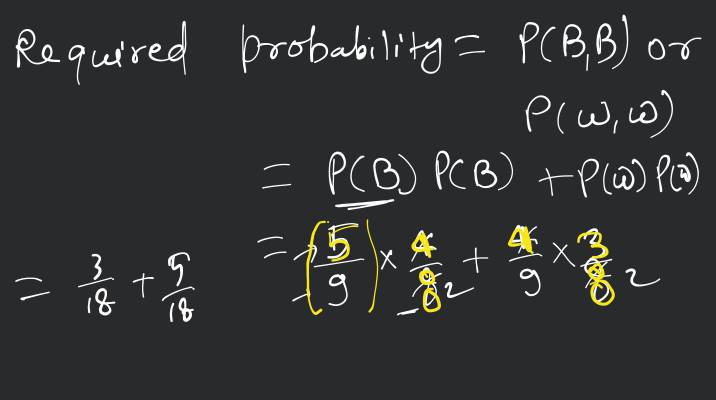 Required probability = P(B,B) or
P(W,W)
= P(B) P(B) + P(W) P(W)
= (5/9) × 4/8 2 + 4/9 × 3/8 2
= 3/18 + 5/18